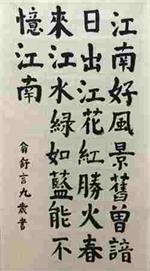 江南好風景舊曾諳
日出江花紅勝火春
來江水綠如藍能不
憶江南
俞舒言九歲書